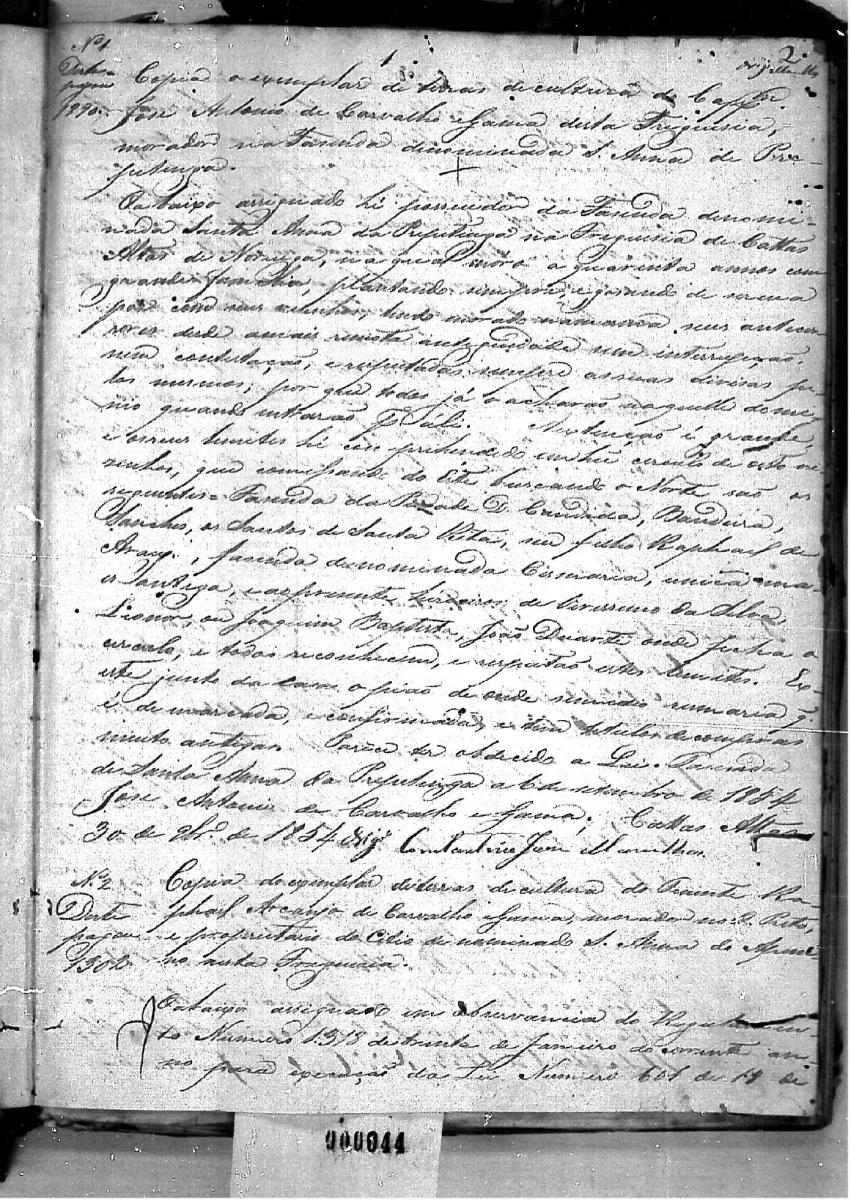 2
Nº 1
Deste
pagou
1890
Copia o exemplar de terras de cultura do Capp.am
José Antonio de Carvalho e Gama desta Freguesia,
morador na Fazenda denominada S. Anna de Pre-
putinga.
O abaixo assignado hé possuidor da Fazenda denomi-
nada Santa Anna da Preputinga na Freguesia de Cattas
Altas de Noruega, na qual moro a quarenta annos com
grande familia, plantando sempre e
por tendo morado na mesma seus anteces-
sores desde a mais remota antiguidade sem interrupção,
nem contestação, e respeitadas sempre as suas divisas pe-
los mesmos, por que todos já o acharão naquelle domi-
nio quando entrarão Sua extenção é grande,
e os seus limites hé em hum circulo de oito vi-
sinhos, que comessando do Este buscando o Norte são os
seguintes = Fazenda da Piedade D. Candida, Bandeira,
Sancho, os Santos de Santa Rita, seu filho Raphael de
Arauj.º, fazenda denominada Cismaria,
e antiga, e as presente herdeiros de Verissimo da Silva,
Lionor, ou Joaquim Baptista, João Duarte onde fecha o
circulo, e todos reconhecem, e respeitão estes limites. Ex-
iste junto da casa o pião de onde se medio sesmaria q.
é demarcada, e confirmada, e tem titulos de compras
muito antigas. Para ter obdecido a Lei. Fazenda
de Santa Anna da Preputinga a 6 de setembro de 1854
José Antonio de Carvalho e Gama; Cattas Altas
30 de 9br.º de 1854 O Vig.º Constantino José
Nº 2
Deste
pagou
1302
Copia do exemplar de terras de cultura do Tenente Ra-
phael Arcanjo de Carvalho e Gama, morador no R. Preto,
e proprietario do Citio denominado S. Anna do
no nesta Freguesia.
O abaixo assignado em observancia do Regulamen-
to Numero 1318 de trinta de Janeiro do corrente an-
no para execução da Lei Numero 601 de 18 de
000044